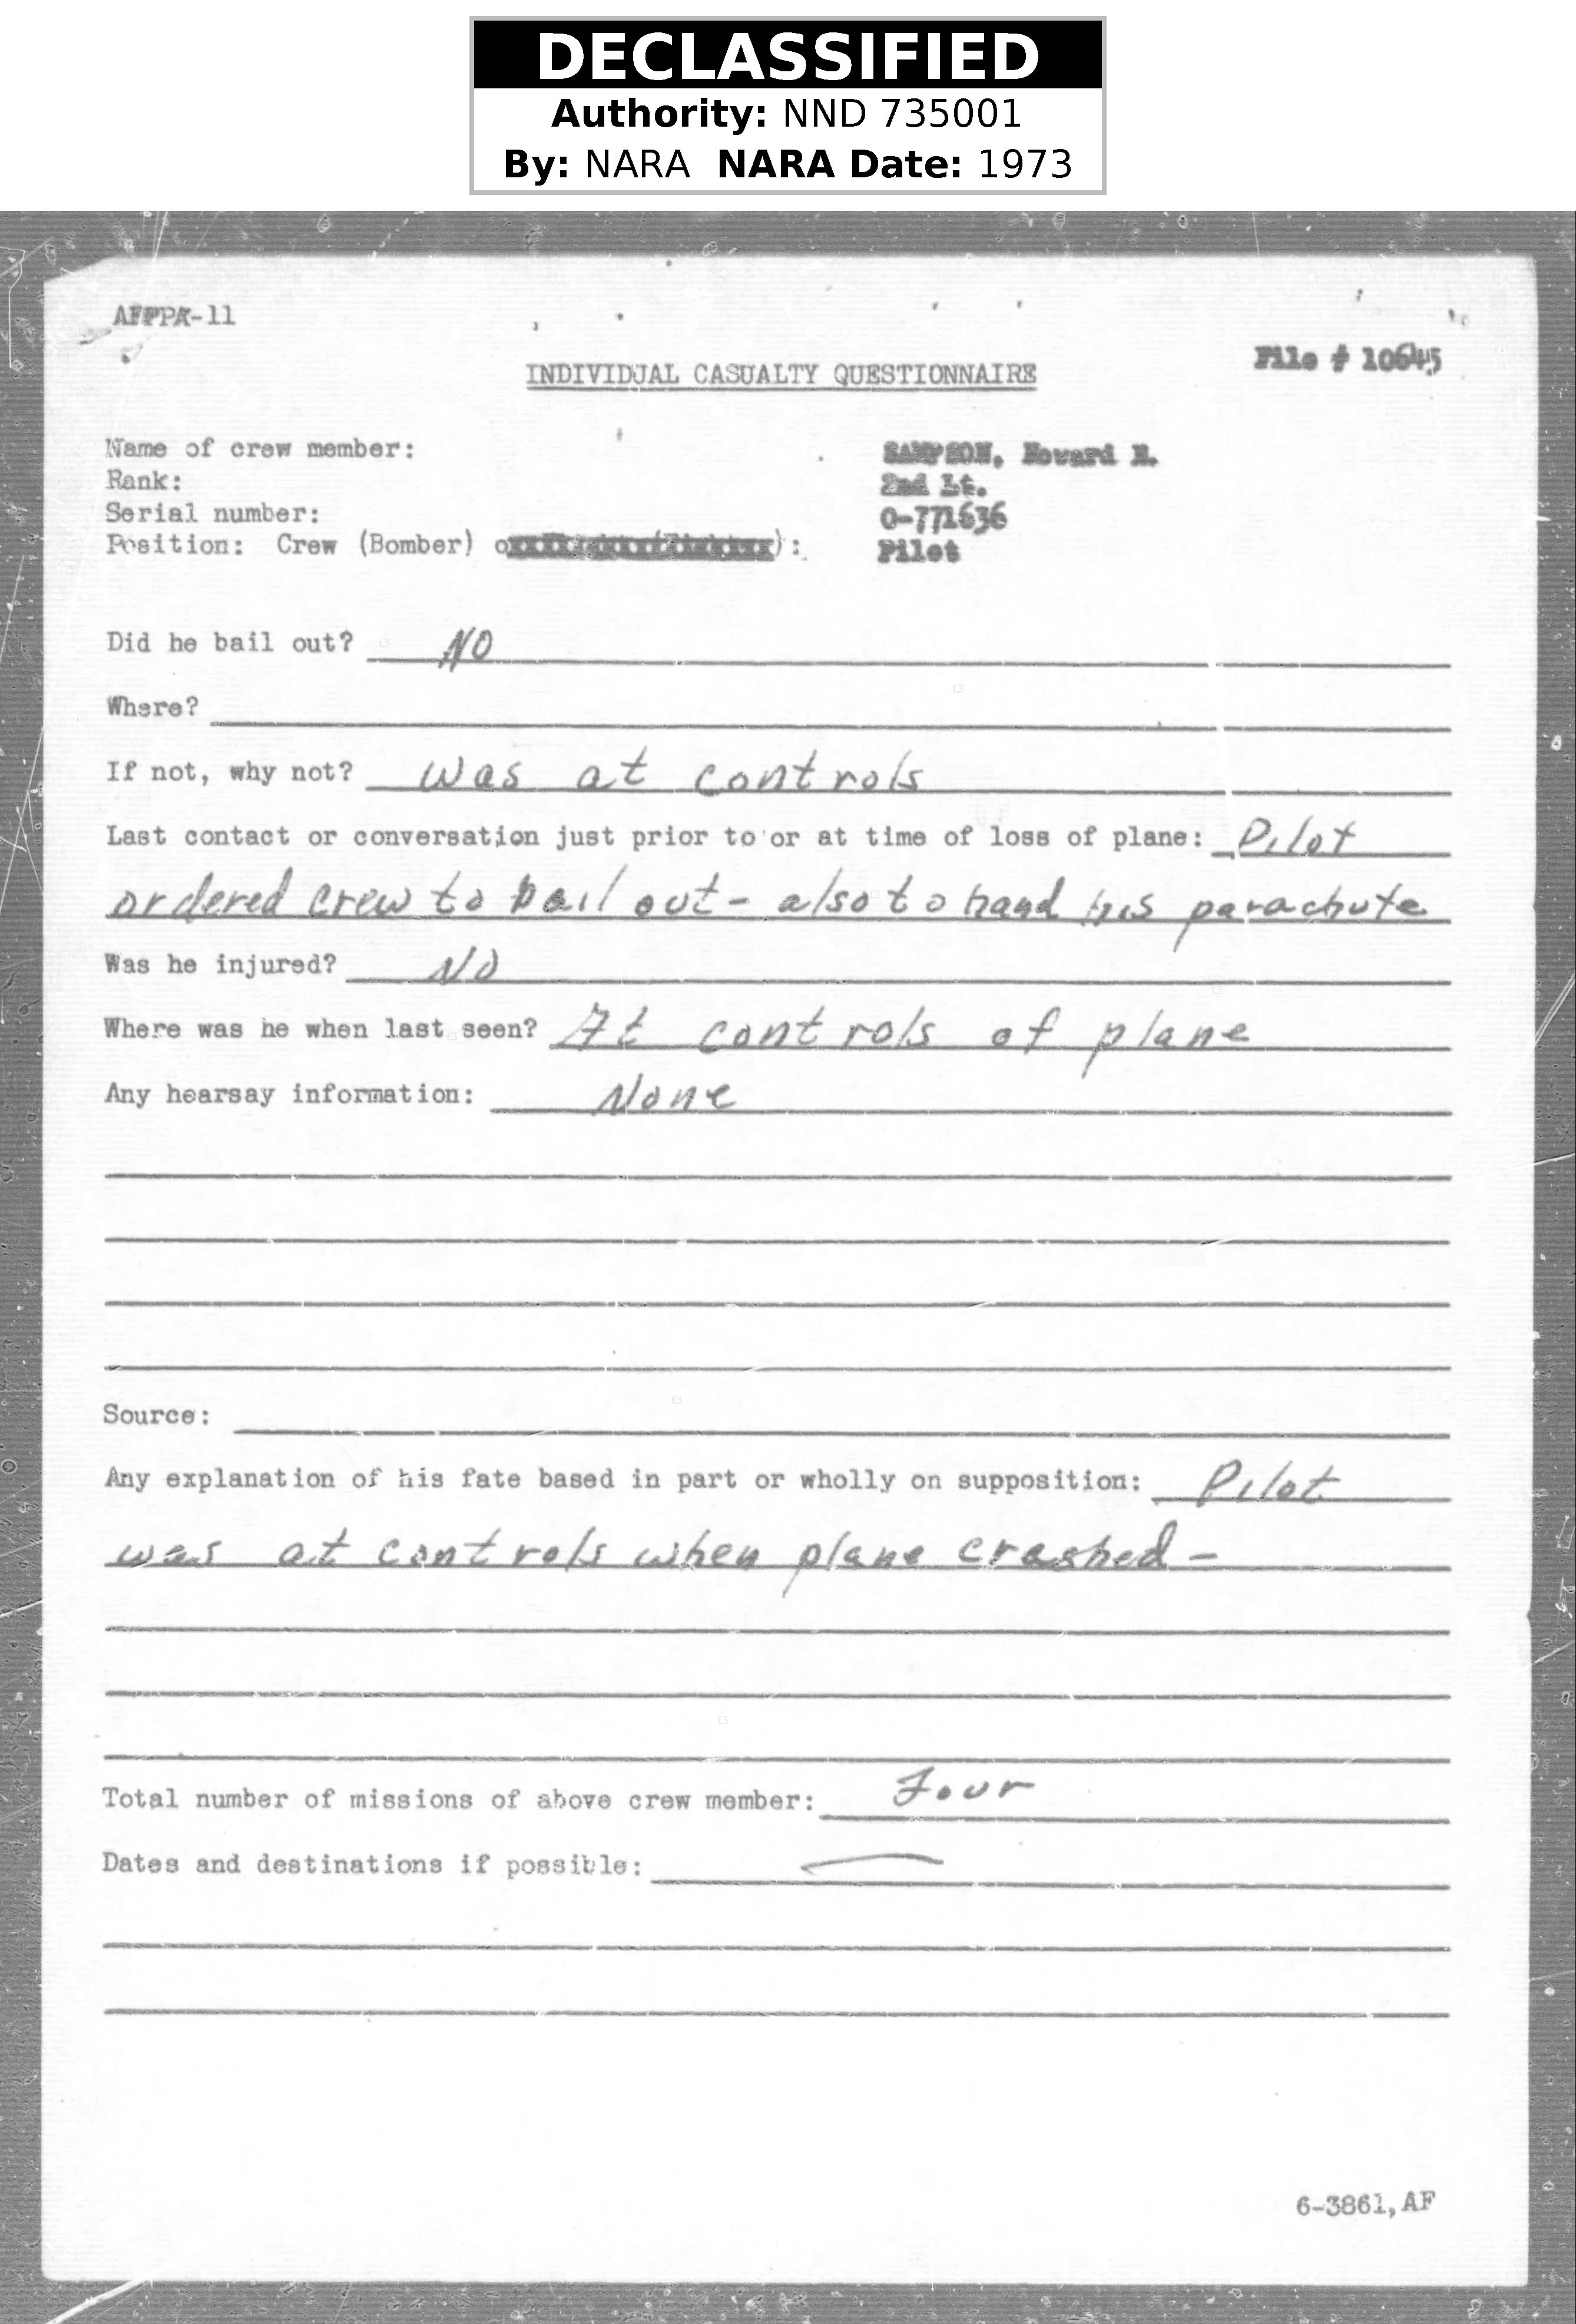 DECLASSIFIED
Authority: NND 735001
By: NARA NARA Date: 1973
AFPPA-11
File # 10645
INDIVIDUAL CASUALTY QUESTIONNAIRE
Name of crew member: SAMPSON, Howard N.
Rank: 2nd Lt.
Serial number: O-771636
Position: Crew (Bomber) o ): Pilot
Did he bail out? NO
Where?
If not, why not? Was at controls
Last contact or conversation just prior to or at time of loss of plane: Pilot
ordered crew to bail out - also to hand his parachute
Was he injured? NO
Where was he when last seen? At controls of plane
Any hearsay information: None
Source:
Any explanation of his fate based in part or wholly on supposition: Pilot
was at controls when plane crashed -
Total number of missions of above crew member: Four
Dates and destinations if possible: —
6-3861, AF